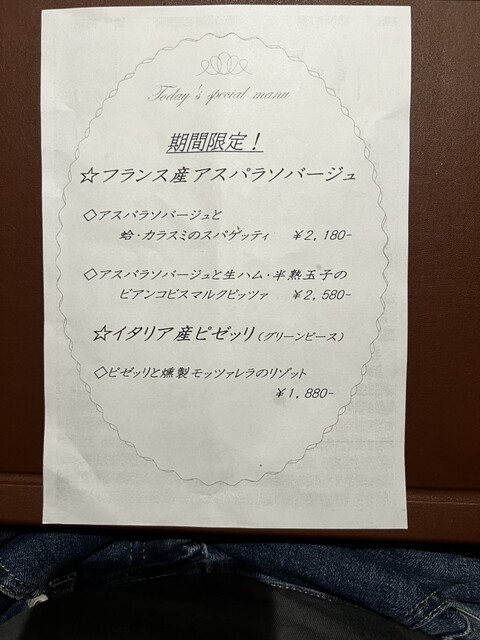 Today's special manu
期間限定！
☆フランス産アスパラソバージュ
◇アスパラソバージュと
蛤・カラスミのスパゲッティ ￥2,180-
◇アスパラソバージュと生ハム・半熟玉子の
ビアンコビスマルクピッツァ ￥2,580-
☆イタリア産ピゼッリ（グリーンピース）
◇ピゼッリと燻製モッツァレラのリゾット
￥1,880-